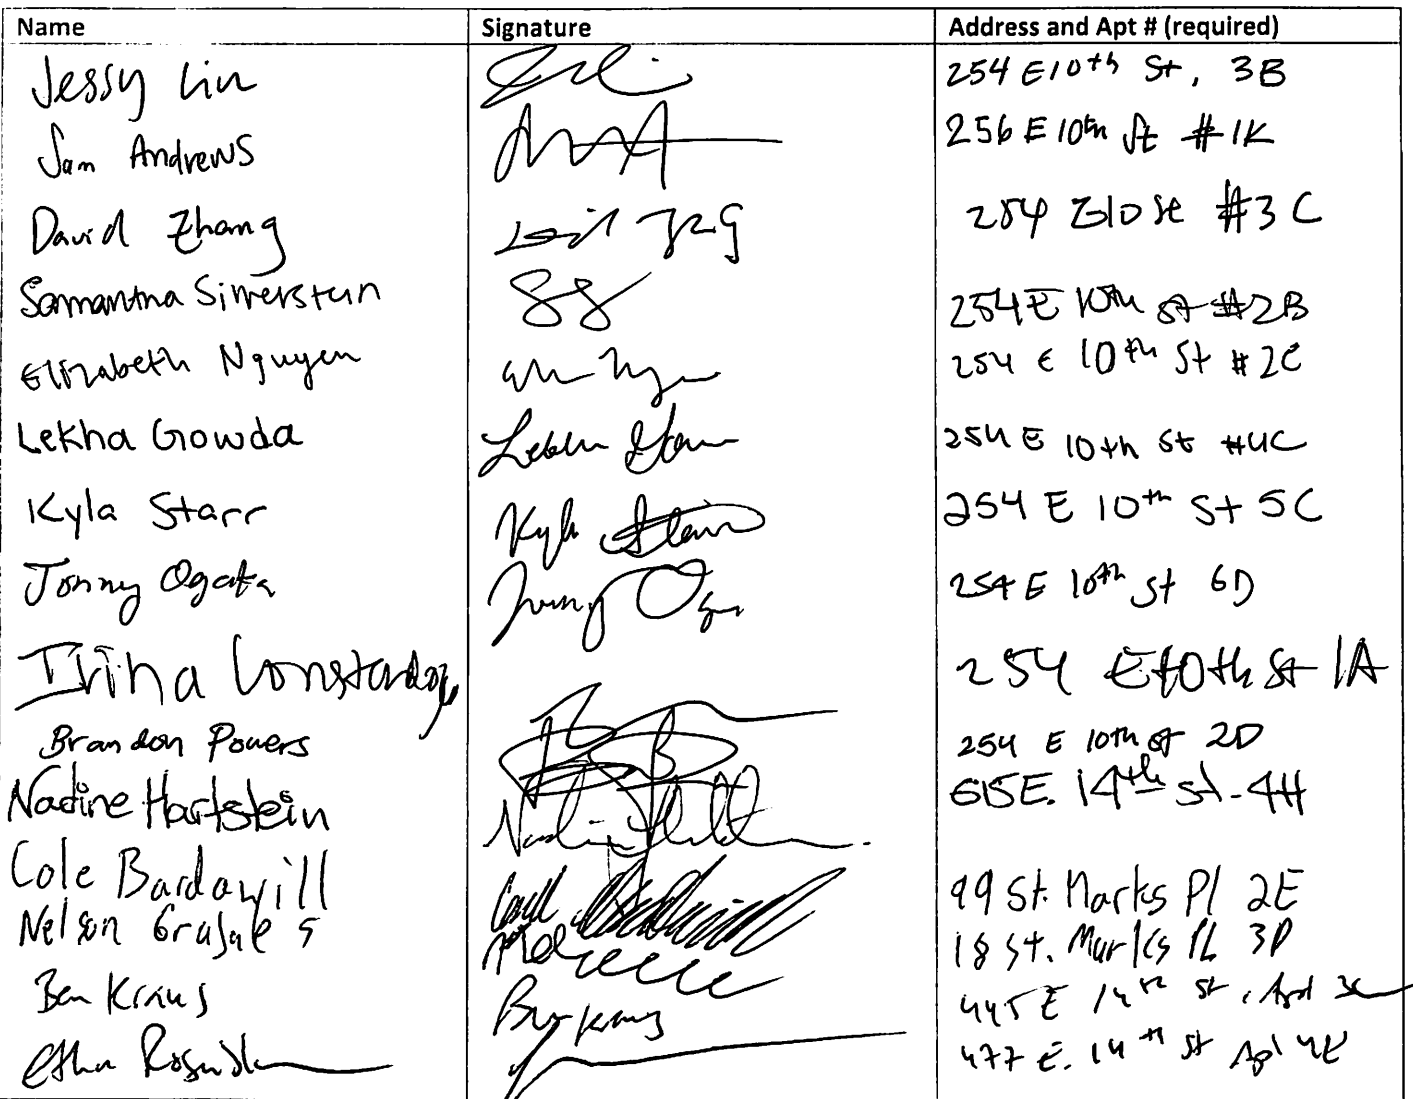 Name Signature Address and Apt # (required)
Jessy Lin 254 E 10th St, 3B
Sam Andrews 256 E 10th St #1K
David Zhang 254 E 10 St #3C
Samantha Silverstein 254 E 10th St #2B
Elizabeth Nguyen 254 E 10th St #2C
Lekha Gowda 254 E 10th St #4C
Kyla Starr Kyla Starr 254 E 10th St 5C
Jonny Ogata 254 E 10th St 6D
Irina 254 E 10th St 1A
Brandon Powers 254 E 10th St 2D
Nadine Hartstein 615 E. 14th St. 4H
Cole Bardawill 99 St. Marks Pl 2E
Nelson Grajales 18 St. Marks PL 3D
Ben Kraus Ben Kraus 445 E 14th St, Apt
Ethan 477 E. 14th St Apt 4E